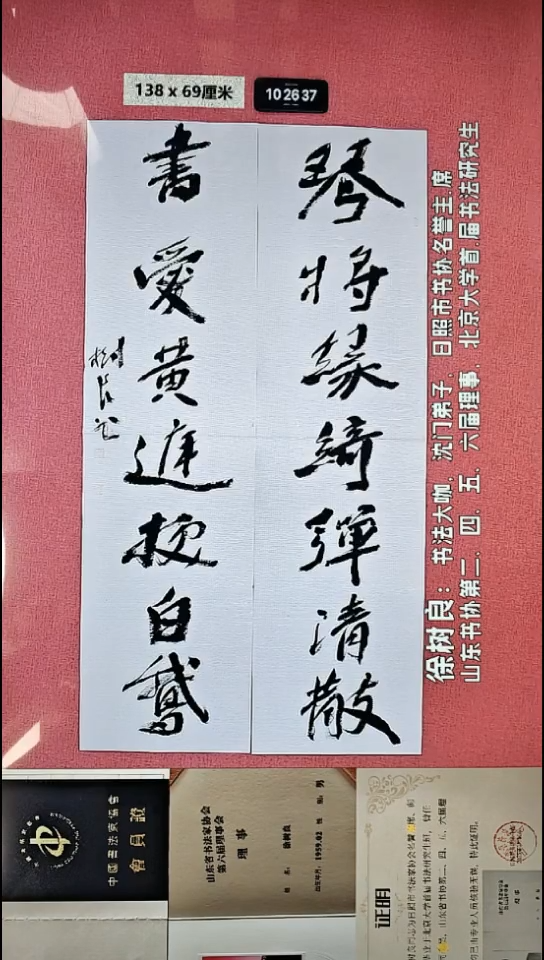 138 x 69厘米
10 26 37
琴將緣綺彈清散
書愛黄進換白鵝
樹良
徐树良：书法大咖，沈门弟子，日照市书协名誉主.席
山东书协第二．四．五．六届理事，北京大学首.届书法研究生
中國書法家協會
會員證
山东省书法家协会
第六届理事会
理 事
徐树良
1959.02
男
证明